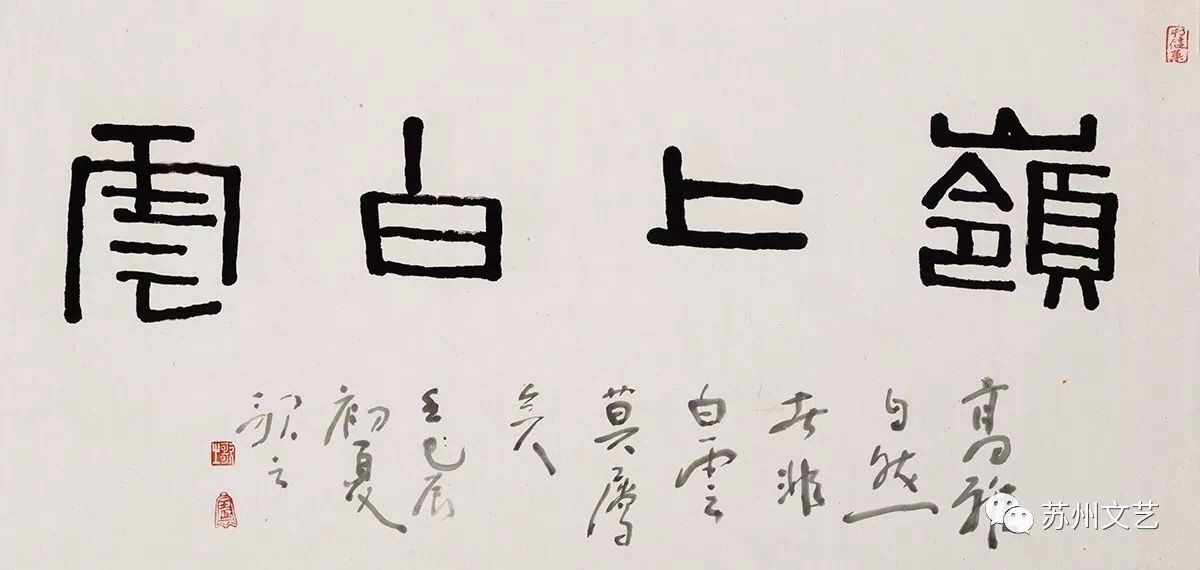 嶺上白雲
高雅
自然
者非
白雲
莫屬
矣
壬辰
初夏
歌之
苏州文艺